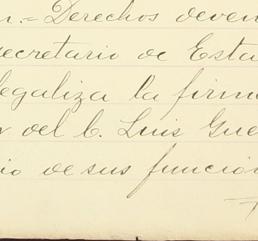 n.= Derechos deven
ecretario de Esta
legaliza la firm
n del C. Luis Gue
io de sus función